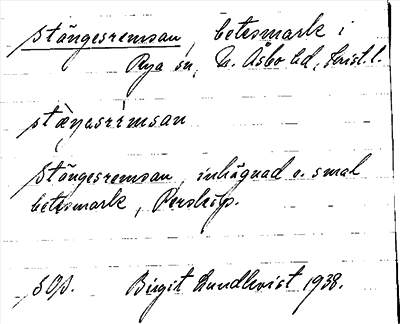 Stängesremsan, betesmark i
Rya sn, N. Åsbo hd, Krist. l.
stæŋasrimsan
Stängesremsan, inhägnad o. smal
betesmark, Perstorp.
Birgit Lundkvist 1938.